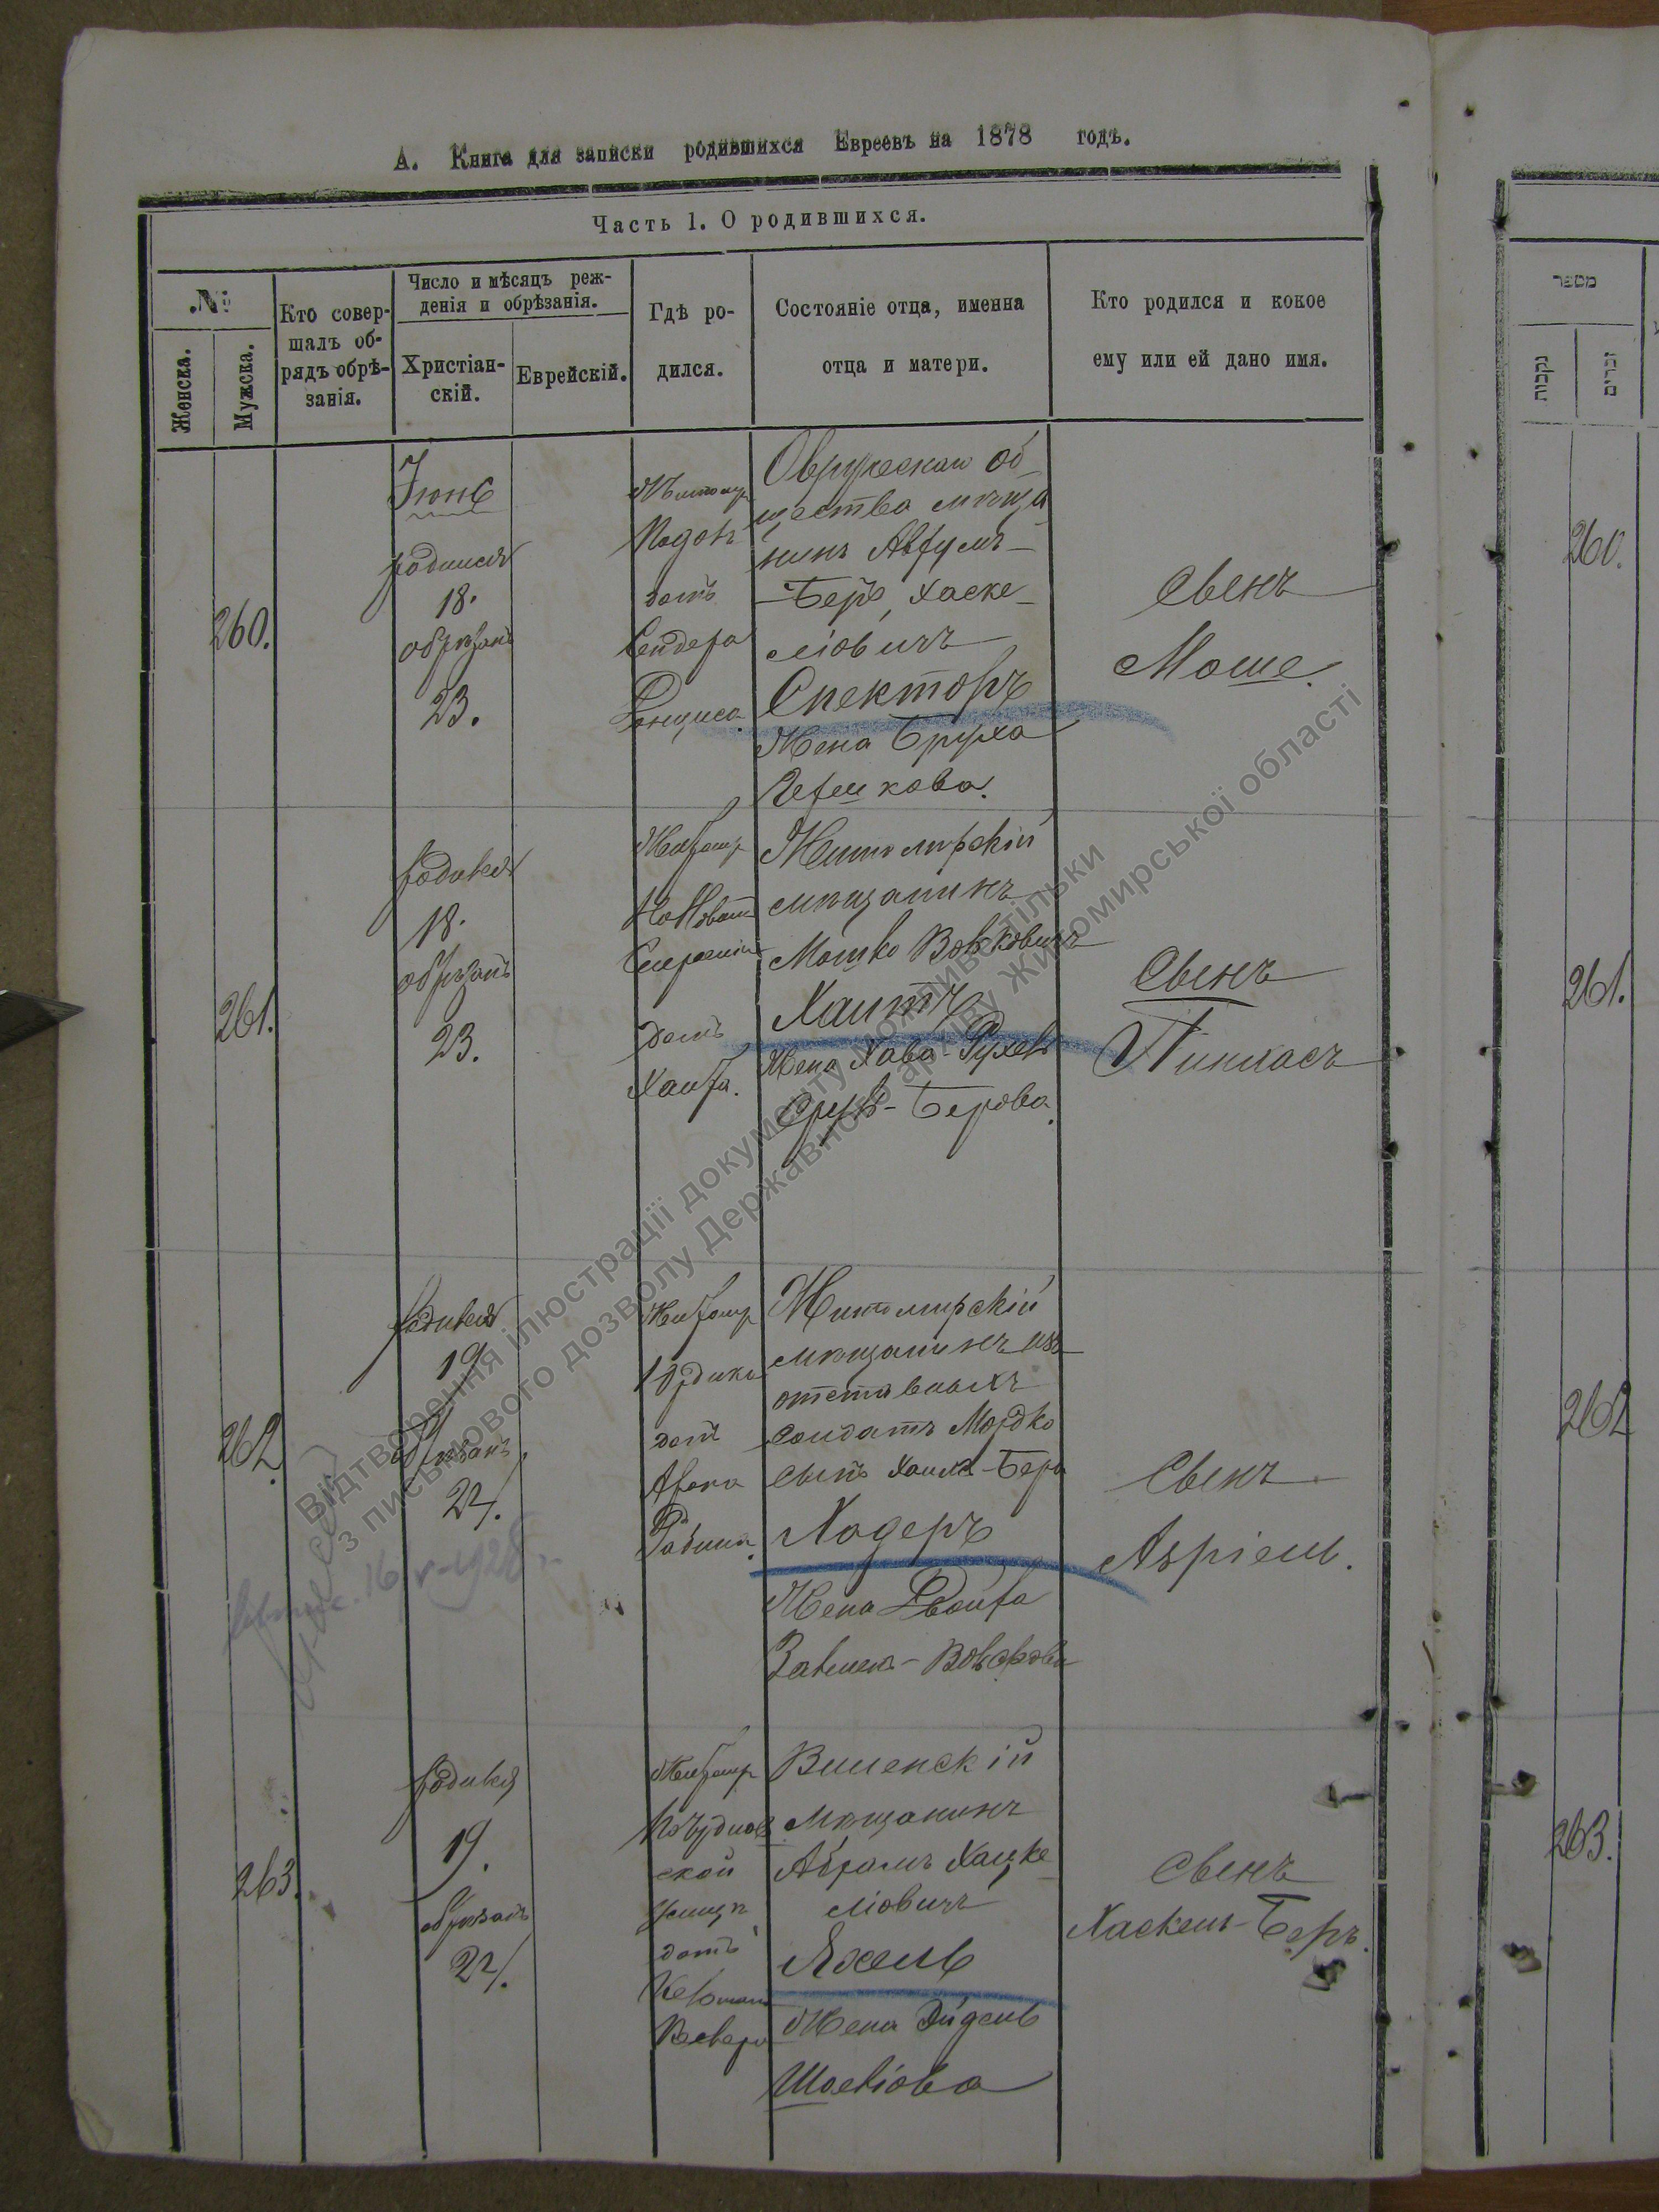 А. Книга для записки родившихся Евреевъ на 1878 годъ.
Часть 1. О родившихся.
№
Женска.
Мужска.
Кто совер-
шалъ об-
рядъ обрѣ-
занія.
Число и мѣсяцъ реж-
денія и обрѣзанія.
Христіан-
скій.
Еврейскій.
Гдѣ ро-
дился.
Состояніе отца, именна
отца и матери.
Кто родился и кокое
ему или ей дано имя.
260.
Іюнь
родился
18.
обрѣзанъ
23.
домъ
Сендера
Овручскаго об-
щества мѣща
нинъ Аврумъ-
-Беръ Хаске-
ліовичъ
Спекторъ
Жена Бруха
Гершкова.
Свенъ
Моше.
261.
родився
18.
обрѣзанъ
23.
Житомир
домъ
Житомирскій
мѣщанинъ
Мошко Вовковичъ
Хаитъ
Жена Хава-Рухель
Сруль-Берова.
Свенъ
Пинхасъ
262.
родився
19
обрѣзанъ
24.
Житомир
домъ
Арона
Рабина.
Житомирскій
мѣщанинъ изъ
отставныхъ
солдатъ Мордко
сынъ Хаима-Бера
Ходеръ
Жена Двойра
Свенъ
Азріель.
16/V-1928
263.
родився
19.
обрѣзанъ
24.
Житомир
ской
домъ
Виленскій
мѣщанинъ
Абрамъ Хацке-
ліовичъ
Яхель
Жена Эйдель
Шоеліова
Свенъ
Хаскель-Беръ.
מספר
נקבות
זכרים
260.
261.
262
263.
Відтворення ілюстрації документу можливо тільки
з письмового дозволу Державного архіву Житомирської області